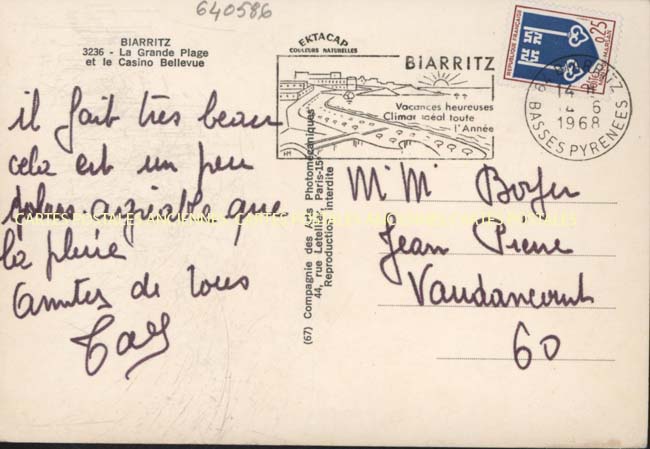 640586
BIARRITZ
3236 - La Grande Plage
et le Casino Bellevue
EKTACAP
COULEURS NATURELLES
BIARRITZ
Vacances heureuses
Climat idéal toute
l'Année
REPUBLIQUE FRANÇAISE
0,25
14
6
1968
BASSES PYRENEES
il fait très beau
cela est un peu
plus agréable que
la pluie
Amitiés de tous
CARTES POSTALES ANCIENNES
(67) Compagnie des Arts Photomécaniques
44, rue Letellier, Paris-15e
Reproduction interdite
M. Mme Boyer
Jean Pierre
Vaudancourt
60